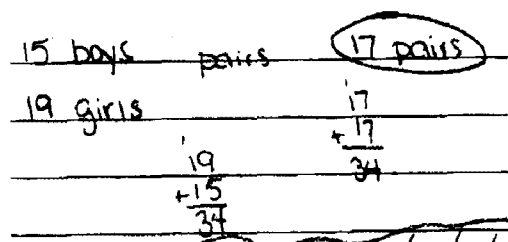 15 boys pairs 17 pairs
19 girls
17
+ 17
34
19
+ 15
34